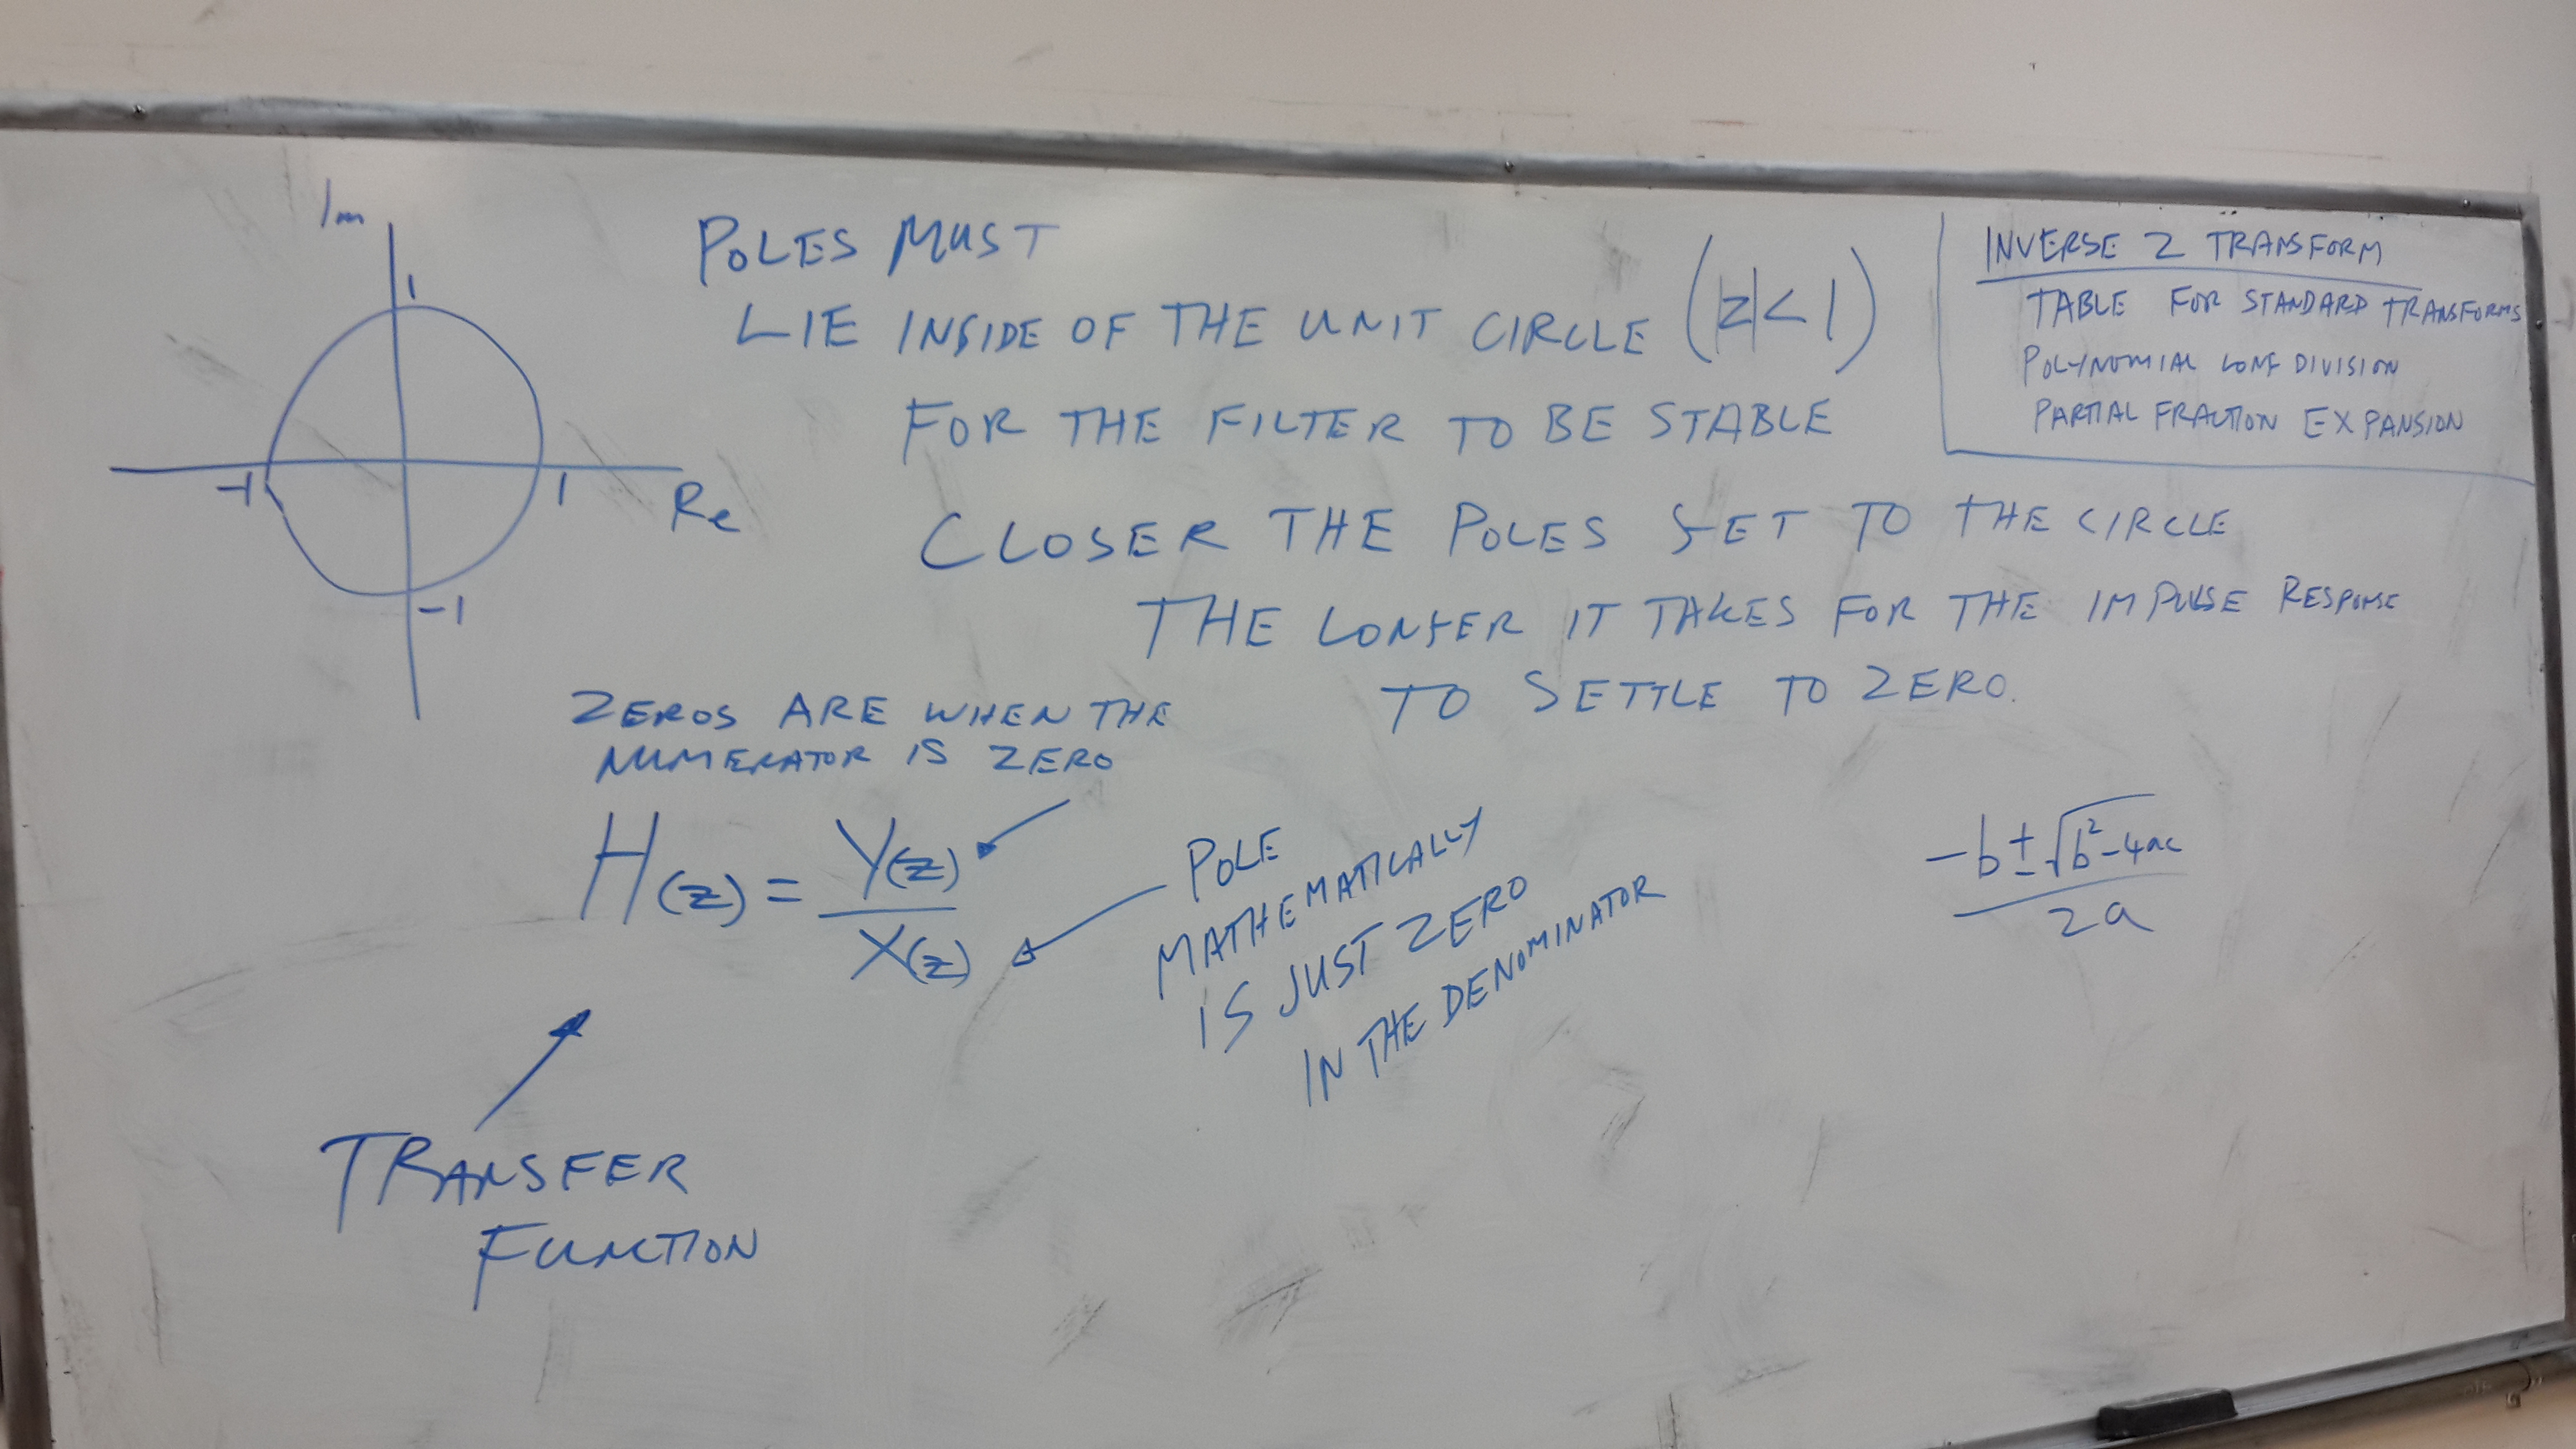 Im
1
-1
1
Re
-1
POLES MUST
LIE INSIDE OF THE UNIT CIRCLE (|z|<1)
FOR THE FILTER TO BE STABLE
CLOSER THE POLES GET TO THE CIRCLE
THE LONGER IT TAKES FOR THE IMPULSE RESPONSE
TO SETTLE TO ZERO.
INVERSE Z TRANSFORM
TABLE FOR STANDARD TRANSFORMS
POLYNOMIAL LONG DIVISION
PARTIAL FRACTION EXPANSION
ZEROS ARE WHEN THE
NUMERATOR IS ZERO
H(z) = Y(z)
X(z)
POLE
MATHEMATICALLY
IS JUST ZERO
IN THE DENOMINATOR
-b ± √b²-4ac
2a
TRANSFER
FUNCTION